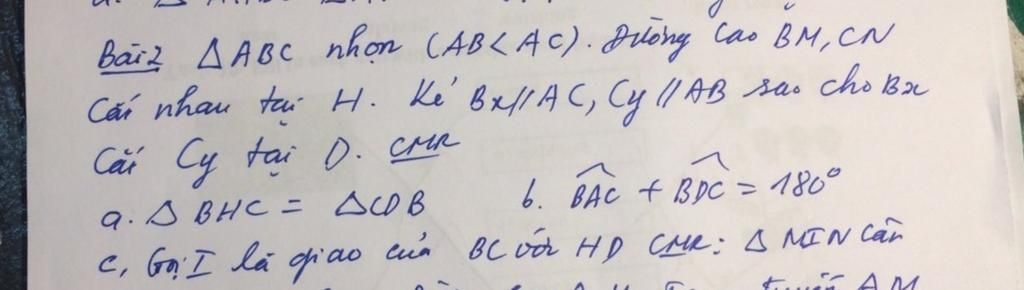 Bài 2 △ABC nhọn (AB < AC). Đường cao BM, CN
Cắt nhau tại H. Kẻ Bx // AC, Cy // AB sao cho Bx
Cắt Cy tại D. CMR
a. △BHC = △CDB b. BAC + BDC = 180°
c, Gọi I là giao của BC với HD CMR: △MIN Cân
AM